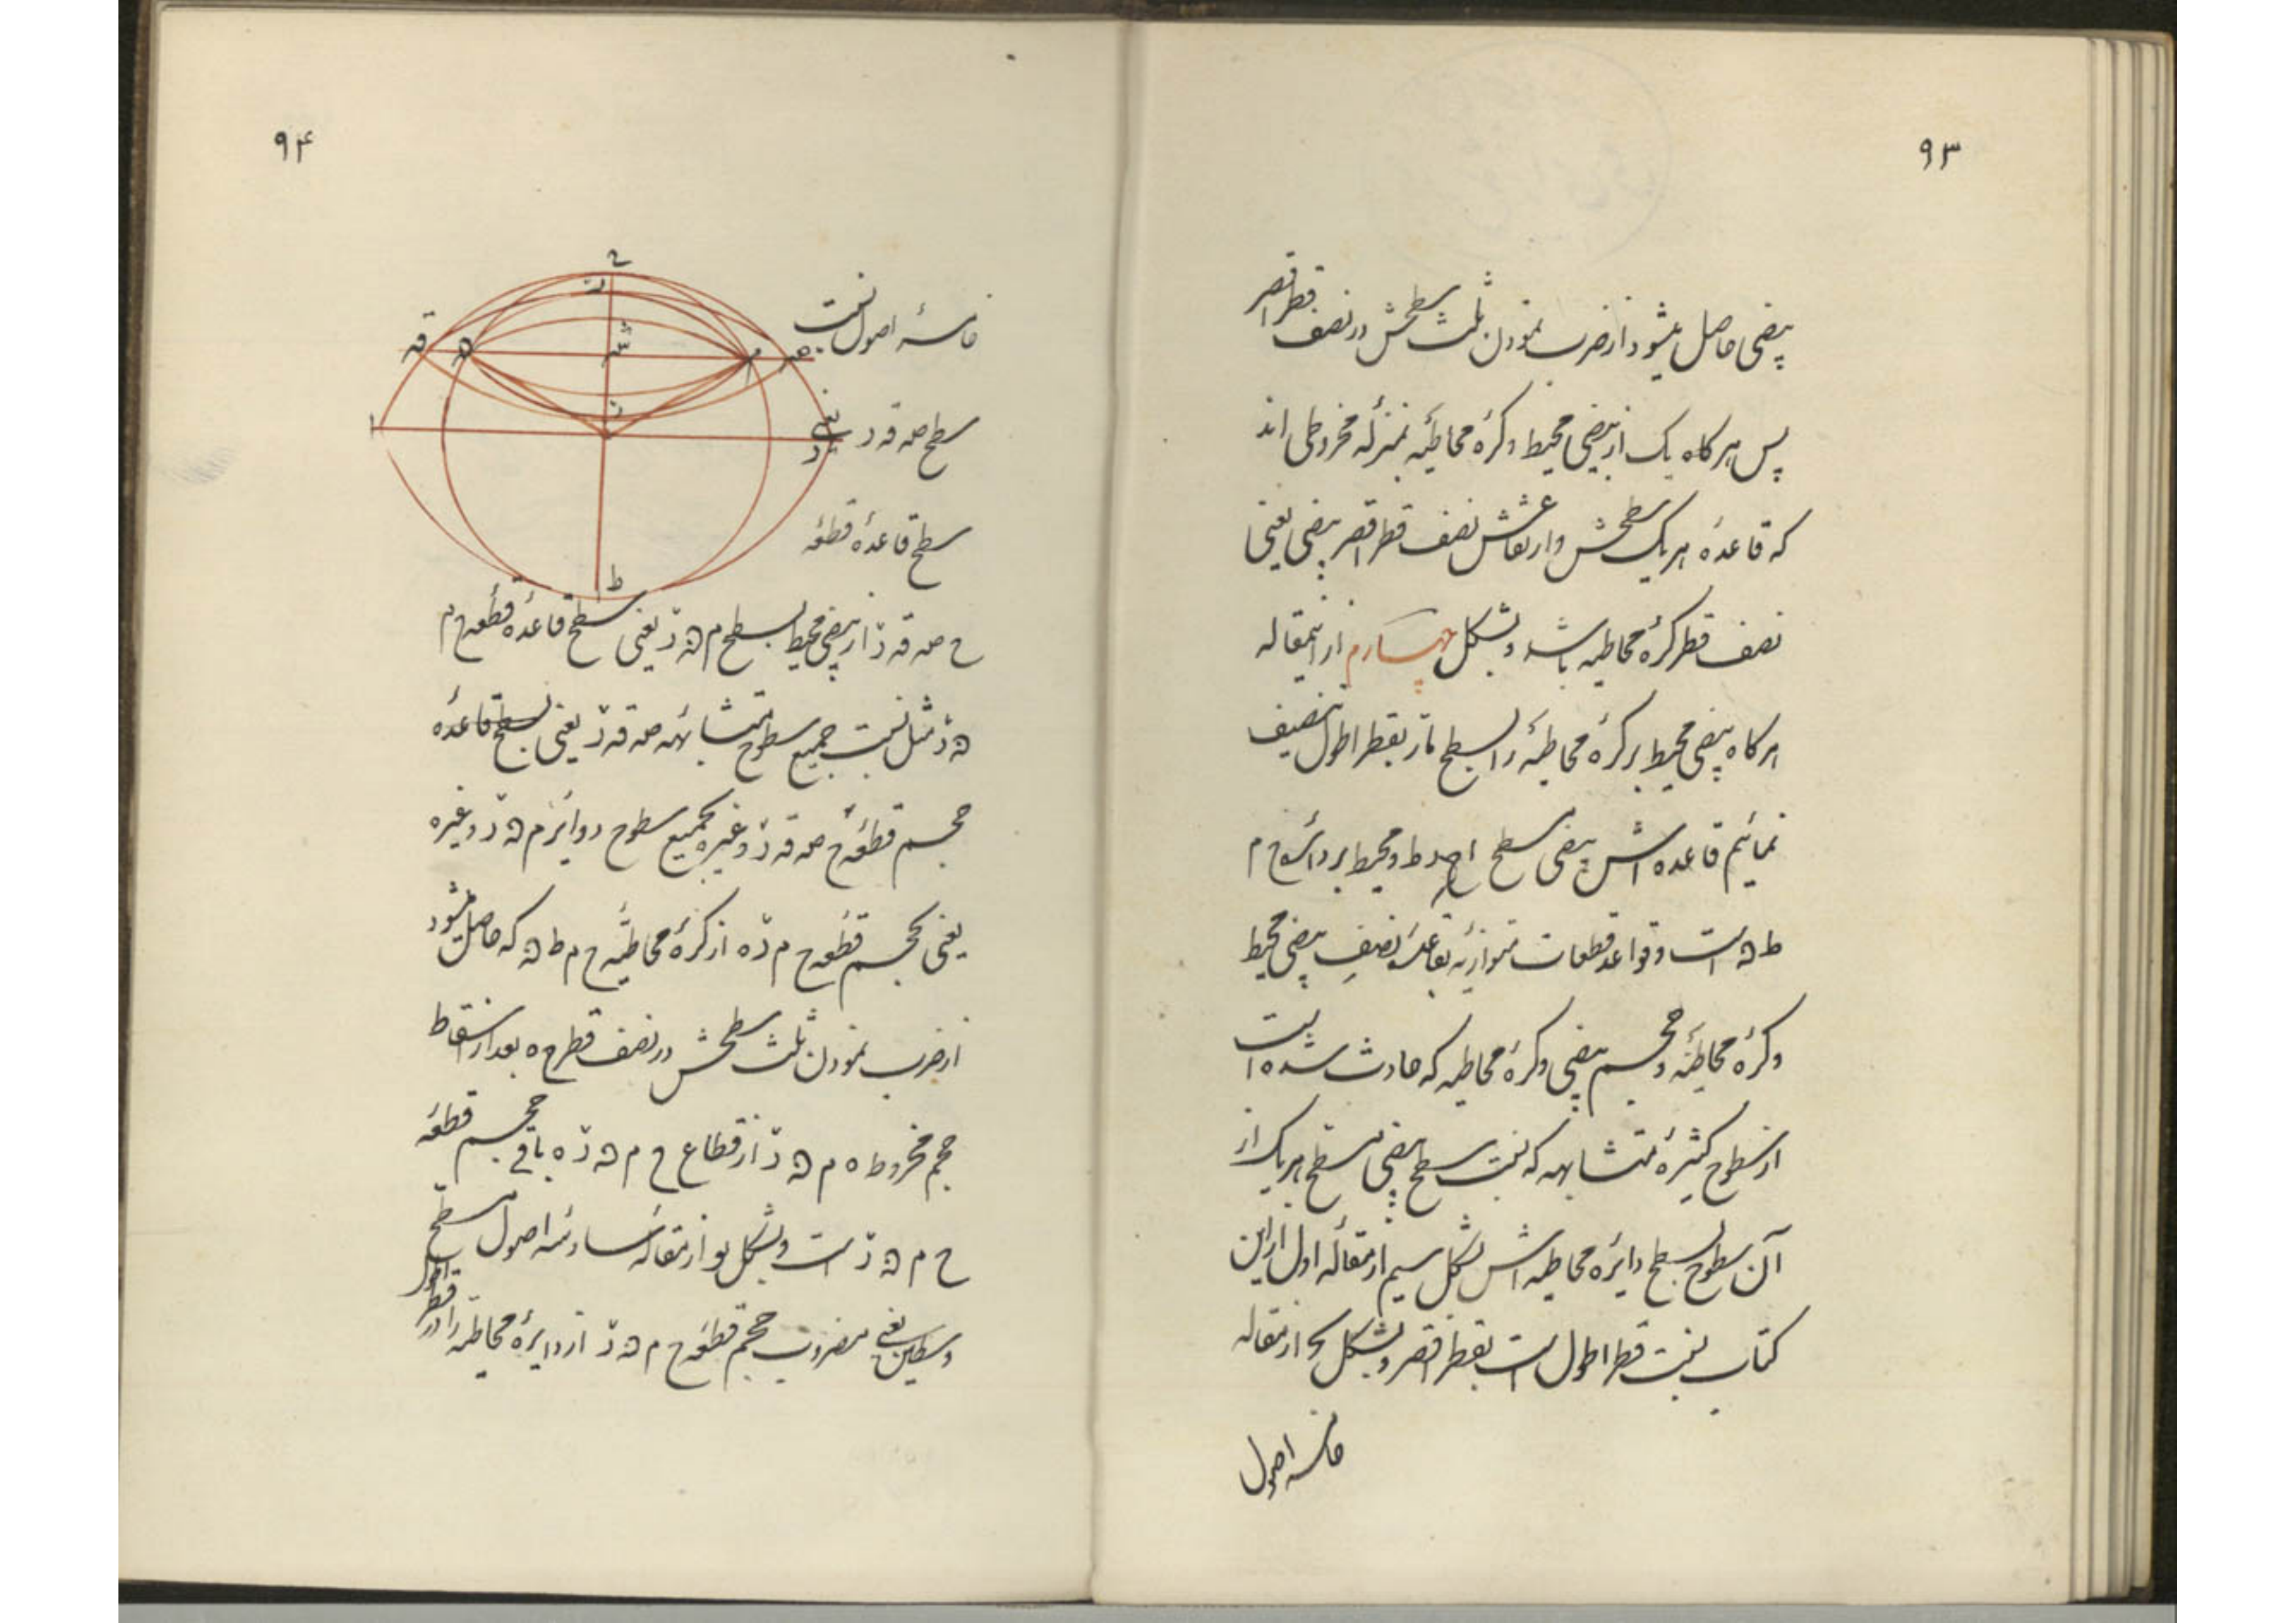 ۹۳
بیضی حاصل میشود از ضرب نمودن ثلث سطحش در نصف قطر اقصر
پس هر کاه یک از بیضی محیط و کرهٔ محاطیه بمنزلهٔ مخروطی اند
که قاعدهٔ هر یک سطحش و ارتفاعش نصف قطر اقصر بیضی یعنی
نصف قطر کرهٔ محاطیه باشد و بشکل چهارم از اینمقاله
هر کاه بیضی محیط بر کرهٔ محاطیه را بسطح مار بقطر اطول تنصیف
نمائیم قاعده اش بیضی سطح ا ح د ط و محیط بر دائرهٔ ح م
ط ﻫ است و قواعد قطعات متوازیه بقاعدهٔ نصف بیضی محیط
و کرهٔ محاطیه و مجسم بیضی و کرهٔ محاطیه که حادث شده است
از سطوح کثیرهٔ متشابهه که نسبت سطح بیضی مسطح هر یک از
آن سطوح بسطح دایرهٔ محاطیه اش بشکل سیم از مقالهٔ اول از این
کتاب نسبت قطر اطول است بقطر اقصر و بشکل یح از مقاله
خامسه اصول
۹۴
ح
ز
قه
ﻫ
م
صه
ا
د
ط
خامسهٔ اصول نسبت
سطح صه قه ز یعنی
سطح قاعدهٔ قطعه
ح صه قه ز از بیضی محیط بسطح م ﻫ ز یعنی سطح قاعدهٔ قطعه ح م
ﻫ ز مثل نسبت جمیع سطوح متشابهه صه قه ز یعنی بسطح قاعدهٔ
مجسم قطعه ح صه قه ز و غیره بجمیع سطوح دوایر م ﻫ ز و غیره
یعنی بمجسم قطعه ح م ز ه از کرهٔ محاطیه ح م ط ﻫ که حاصل میشود
از ضرب نمودن ثلث سطحش در نصف قطر ح ه بعد از اسقاط
حجم مخروط ه م ﻫ ز از قطاع ح م ﻫ ز ه باقی مجسم قطعه
ح م ﻫ ز است و بشکل یو از مقالهٔ سادسهٔ اصول مسطح
وسطین یعنی مضروب حجم قطعه ح م ﻫ ز از دایرهٔ محاطیه را در قطر